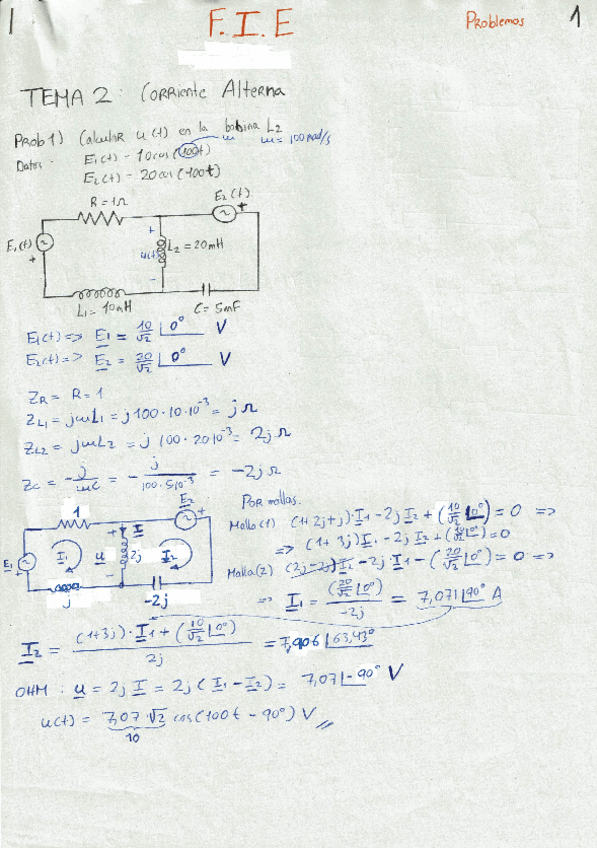 F.I.E
Problemas 1
TEMA 2: Corriente Alterna
Prob 1) Calcular u(t) en la bobina L2
ω ω = 100 rad/s
Datos: E1(t) = 10cos(100t)
E2(t) = 20cos(100t)
R = 1Ω
E2(t)
+
E1(t)
+
+
u(t)
-
L2 = 20mH
L1 = 10mH
C = 5mF
E1(t) => E1 = 10/√2 ∠0° V
E2(t) => E2 = 20/√2 ∠0° V
ZR = R = 1
ZL1 = jωL1 = j100·10·10^-3 = jΩ
ZL2 = jωL2 = j 100·20·10^-3 = 2jΩ
ZC = -j/ωC = - j/100·5·10^-3 = -2jΩ
1
E2
+
E1
+
I1
+
u
-
I
2j
I2
j
-2j
Por mallas.
Malla(1) (1+2j+j)·I1 - 2j I2 + (10/√2 ∠0°) = 0 =>
=> (1+3j)I1 - 2j I2 + (10/√2 ∠0°) = 0
Malla(2) (2j-2j)I2 - 2j·I1 - (20/√2 ∠0°) = 0 =>
=> I1 = (20/√2 ∠0°)/-2j = 7,071∠90° A
I2 = (1+3j)·I1 + (10/√2 ∠0°)/2j = 7,906∠63,43°
OHM: u = 2j I = 2j(I1 - I2) = 7,07∠-90° V
u(t) = 7,07·√2 cos(100t - 90°) V //
10